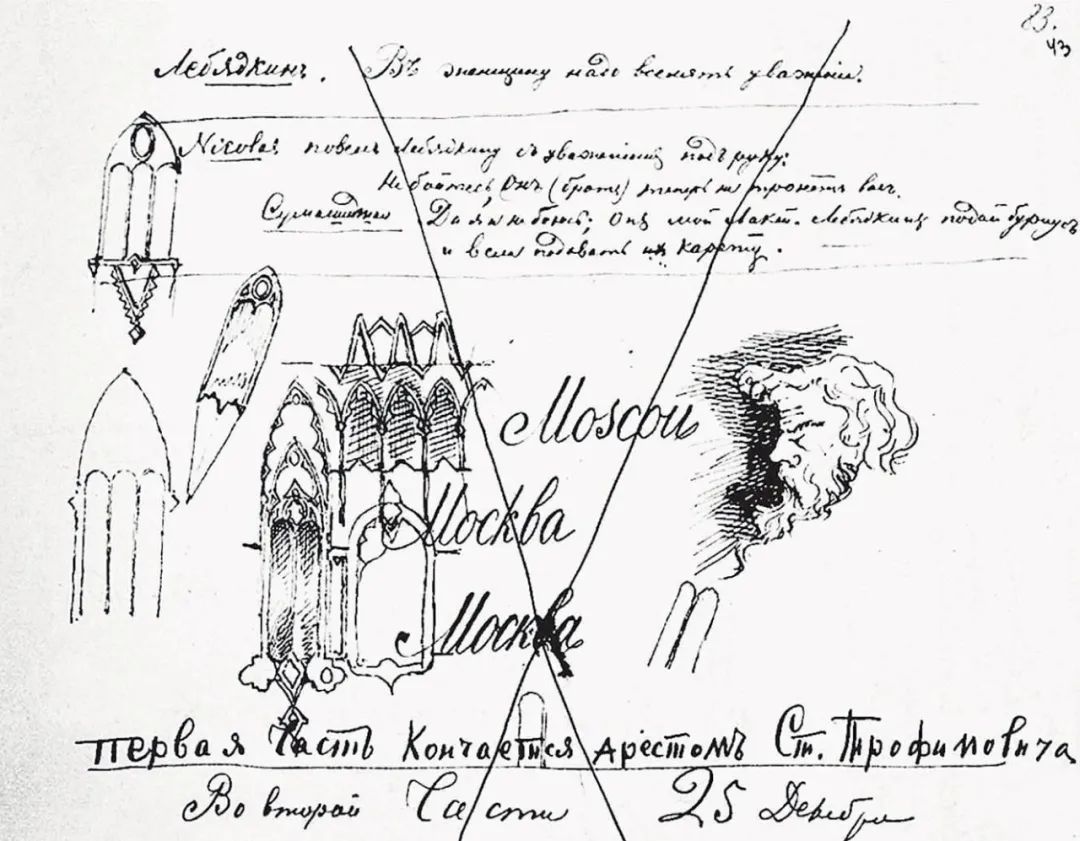 83.
43
Лебядкинъ. Въ женщину надо вселять уваженіе.
Nicolas повелъ Лебядкину съ уваженіемъ подъ руку:
Не бойтесь, Онъ (братъ) теперь не тронетъ васъ.
Сумасшедшая Да я и не боюсь; Онъ мой лакей. Лебядкинъ подай бурнусъ
и вели подавать карету.
Moscou
Москва
Москва
Первая Часть Кончается арестомъ Ст. Трофимовича
Во второй Части 25 Декабря